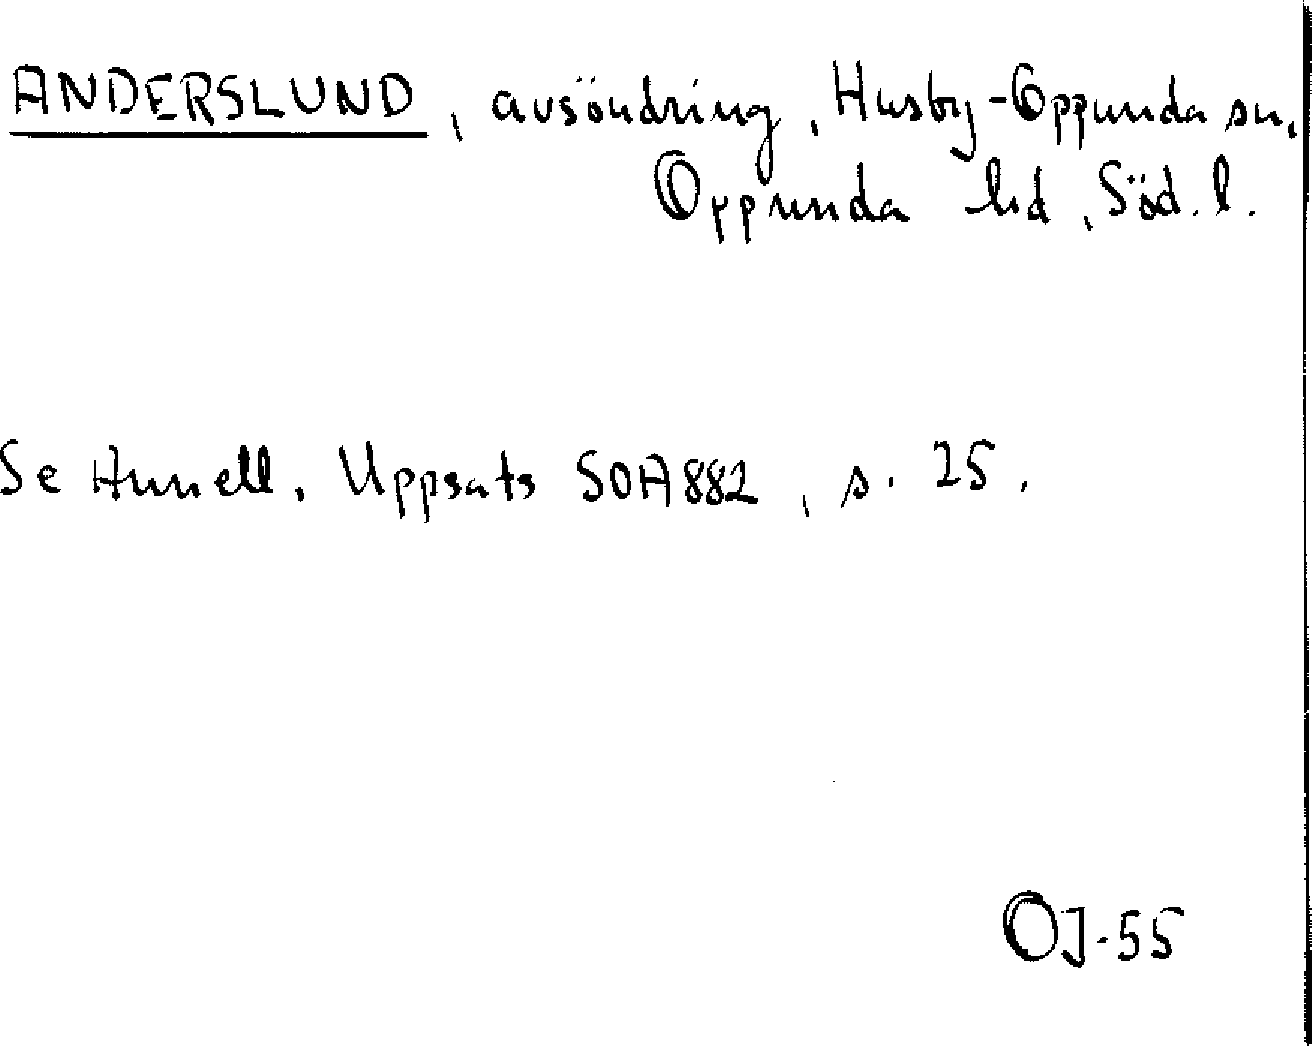 ANDERSLUND, avsöndring, Husby-Oppunda sn,
Oppunda hd, Söd. l.
Se Hunell, Uppsats SOA882, s. 25.
OJ-55